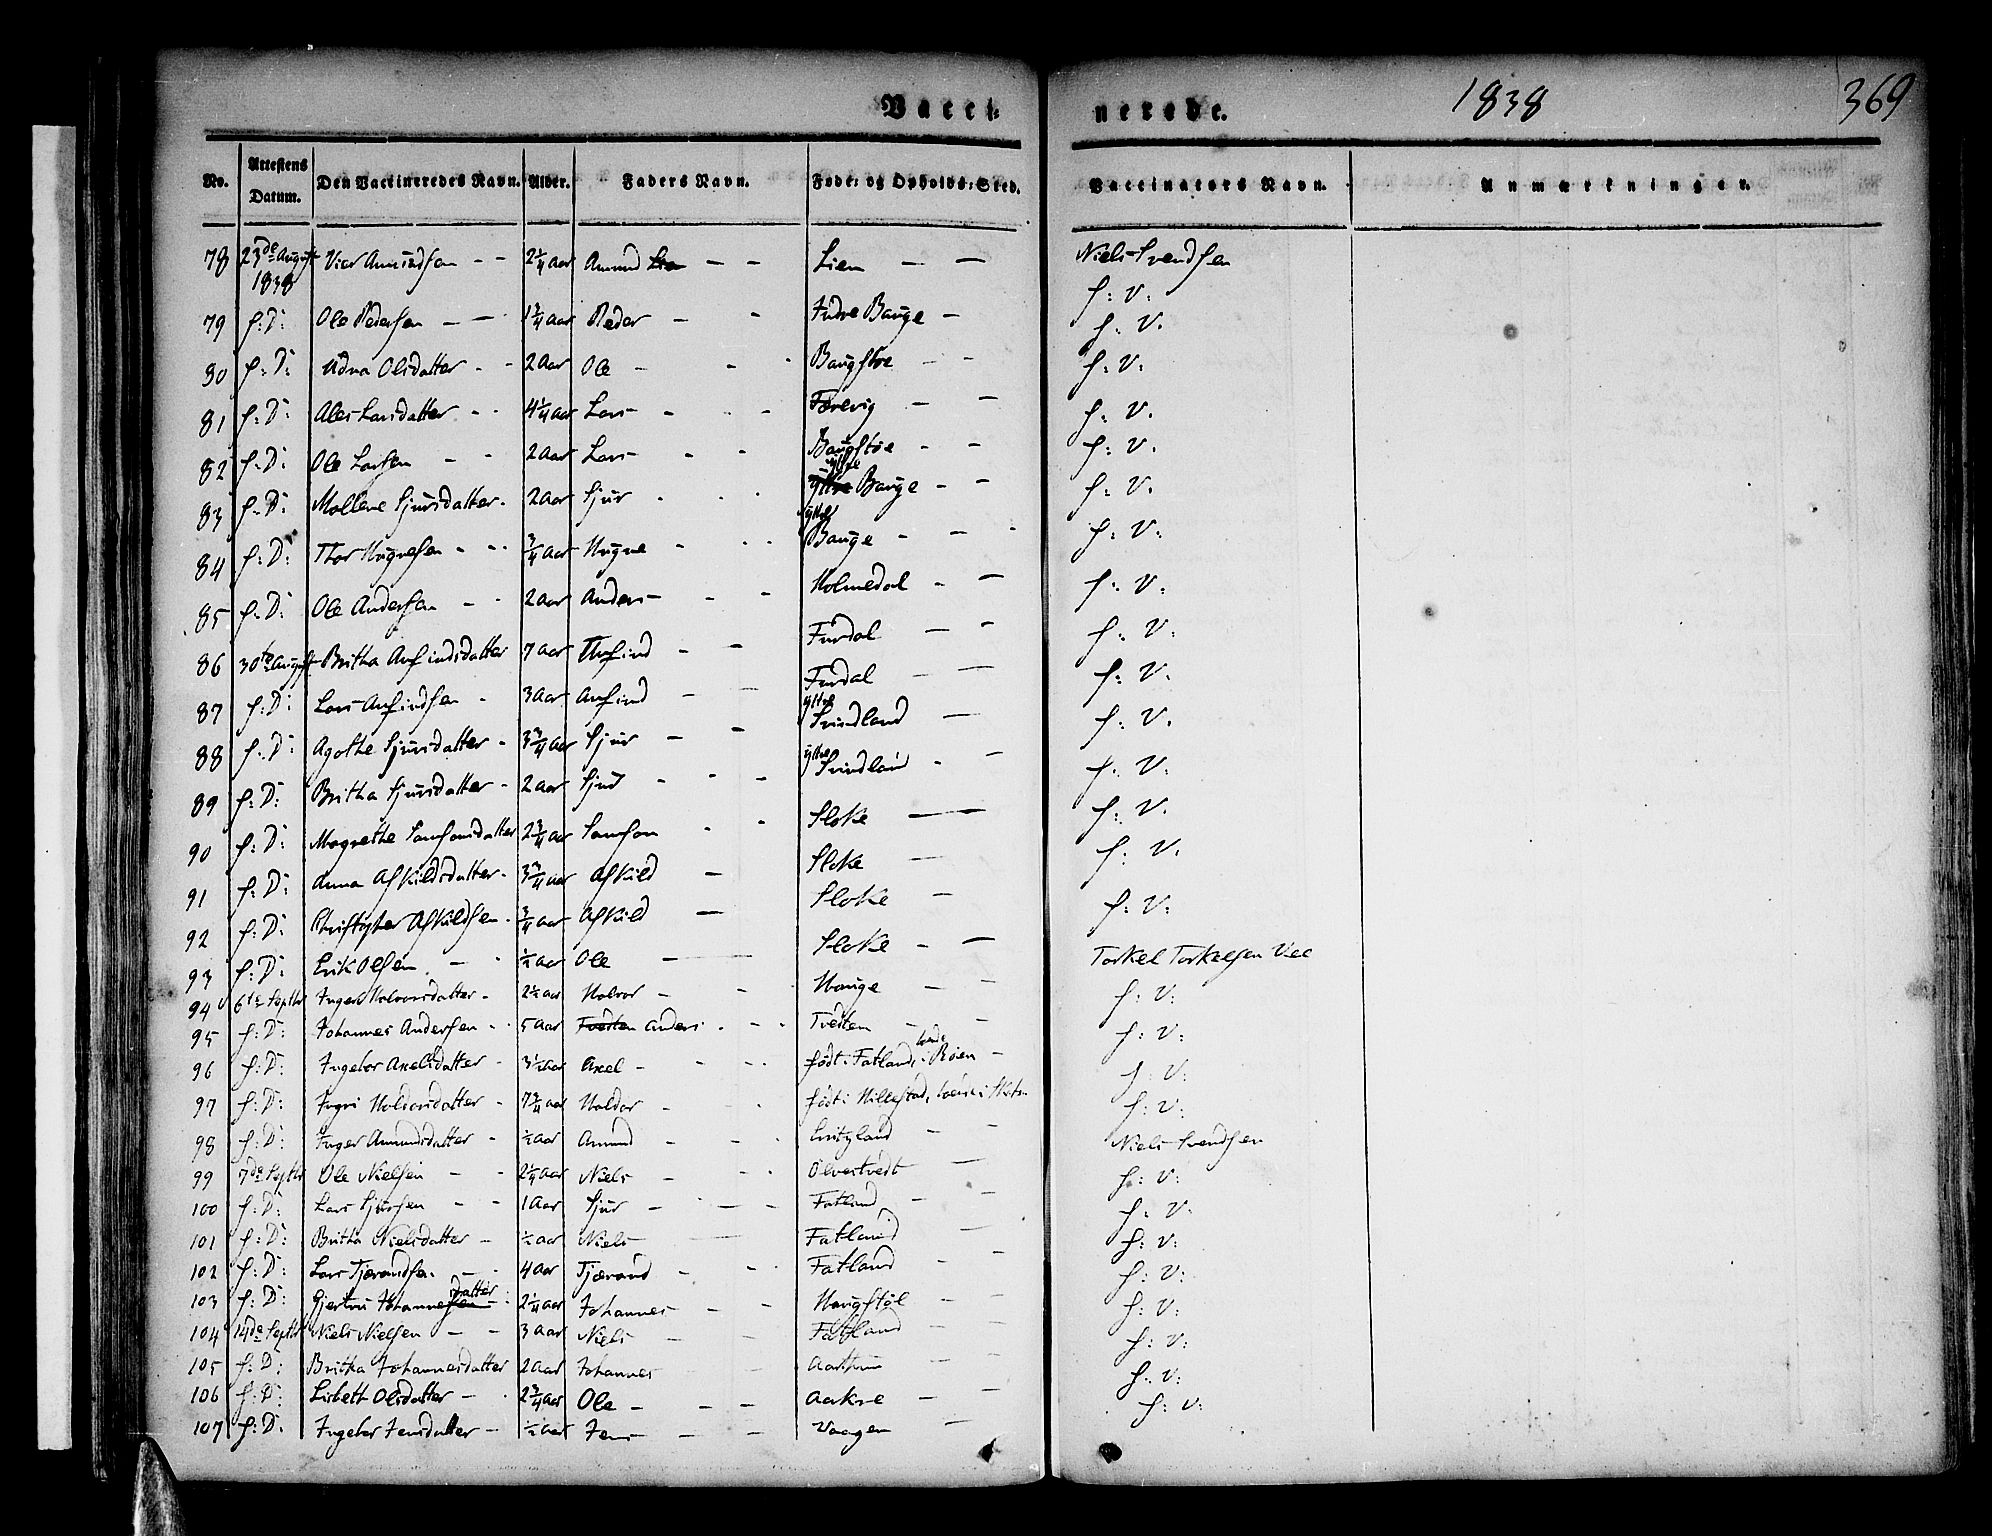 Vacci-
nerede.
1838
369
No. Attestens Datum. Den Vaccineredes Navn. Alder. Faders Navn. Føde- og Opholds-Sted. Vaccinators Navn. Anmærkninger.
78 23de August 1838 Amundsen - - 2 1/4 Aar Amund - - Lien - - Niels Svendsen
79 f: D: Ole Pedersen - - 1 3/4 Aar Peder - - Indre Bauge - f: V:
80 f: D: Olsdatter - - 2 Aar Ole - - Baugstøe - - f: V.
81 f: D: Larsdatter - - 4 1/4 Aar Lars - - - f: V:
82 f: D: Ole Larsen - - 2 Aar Lars - - Baugstøe - - f: V.
83 f: D: Mallene Sjursdatter - 2 Aar Sjur - - ytre Bauge - - f: V.
84 f: D: Thor Magnesen - - 3/4 Aar Magne - - ytre Bauge - - f: V:
85 f: D: Ole Andersen - - 2 Aar Anders - - Holmedal - - f: V:
86 30te August Britha Anfindsdatter 7 Aar Anfind - - Furdal - - f: V:
87 f: D: Lars Anfindsen - 3 Aar Anfind - - Furdal - - f: V:
88 f: D: Agathe Sjursdatter - 3 3/4 Aar Sjur - - ytre Svindland - f: V.
89 f: D: Britha Sjursdatter - 2 Aar Sjur - - ytre Svindland - - f: V.
90 f: D: Magrethe Samsonsdatter 2 3/4 Aar Samson - - Sloke - - f: V.
91 f: D: Anna Askildsdatter - 3 3/4 Aar Askild - Sloke - f: V.
92 f: D: Christopher Askildsen - 3/4 Aar Askild - Sloke - f: V:
93 f: D: Erik Olsen - - 1/2 Aar Ole - - Sloke - - Torkel Torkelsen
94 6te Septbr Inger Halvorsdatter - 2 1/2 Aar Halvor - - Hauge - - f: V:
95 f: D: Johannes Andersen - - 5 Aar Tvedten Anders - - Tvedten - - f: V:
96 f: D: Ingebor Axelsdatter - 3 1/2 Aar Axel - - - født i Fatland, i Røien - f: V:
97 f: D: Ingri Haldorsdatter - 7 3/4 Aar Haldor - - født i Hillestad, f: V:
98 f: D: Inger Amundsdatter - 1/2 Aar Amund - - - - Niels Svendsen
99 7de Septbr Ole Nielsen - - 2 1/4 Aar Niels - - - Ølvestvedt - - f: V:
100 f: D: Lars Sjursen - - 1 Aar Sjur - - - Fatland - - f: V:
101 f: D: Britha Nielsdatter - 1/2 Aar Niels - Fatland - f: V:
102 f: D: Lars Tjærandsen - - 4 Aar Tjærand - - - Fatland - f: V:
103 f: D: Gjertru Johannesdatter - 2 1/4 Aar Johannes - - Haugstøl - - f: V:
104 14de Septbr Niels Nielsen - - 3 Aar Niels - - Fatland - f: V:
105 f: D: Britha Johannesdatter 2 Aar Johannes - - f: V:
106 f: D: Lisbeth Olsdatter - - 2 3/4 Aar Ole - - - Aakre - - f: V:
107 f: D: Ingebor Jensdatter - 1/2 Aar Jens - - - Vaagen -